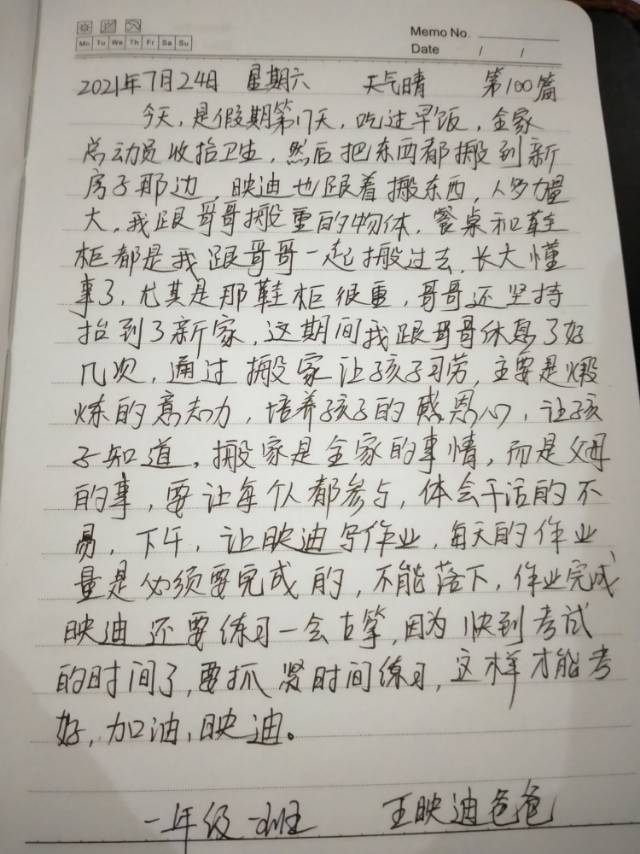 Memo No.
Mo Tu We Th Fr Sa Su
Date / /
2021年7月24日 星期六 天气晴 第100篇
今天,是假期第17天,吃过早饭,全家
总动员收拾卫生,然后把东西都搬到新
房子那边,映迪也跟着搬东西,人多力量
大,我跟哥哥搬重的物体,餐桌和鞋
柜都是我跟哥哥一起搬过去,长大懂
事了,尤其是那鞋柜很重,哥哥还坚持
抬到了新家,这期间我跟哥哥休息了好
几次,通过搬家让孩子习劳,主要是煅
炼的意志力,培养孩子的感恩心,让孩
子知道,搬家是全家的事情,而是父母
的事,要让每个人都参与,体会干活的不
易,下午,让映迪写作业,每天的作业
量是必须要完成的,不能落下,作业完成
映迪还要练习一会古筝,因为快到考试
的时间了,要抓紧时间练习,这样才能考
好,加油,映迪。
一年级一班 王映迪爸爸